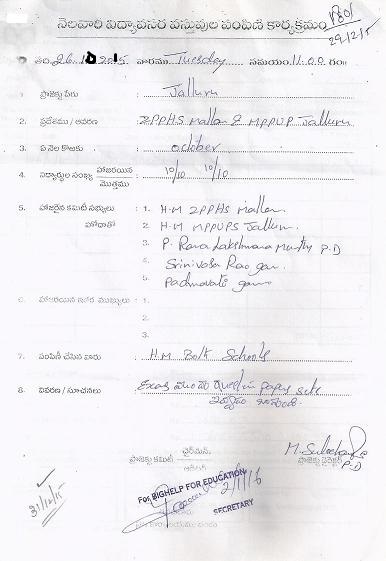 నెలవారి విద్యావసర వస్తువుల పంపిణీ కార్యక్రమం
29/12/15
తేది 26. 2015 వారము Tuesday సమయం 11.00 గం॥
1. ప్రాజెక్టు పేరు Jalluru
2. ప్రదేశము / ఆవరణ ZPPHS Mallam & MPPUP Jalluru
3. ఏ నెల కొరకు October
4. విద్యార్థుల సంఖ్య హాజరయిన 10/10 10/10
మొత్తము
5. హాజరైన కమిటీ సభ్యులు : 1. H.M ZPPHS Mallam
హోదాతో 2. H.M MPPUPS Jalluru
3. P. Rama Lakshmana Murthy P.D
4. Srinivasa Rao garu.
5. Padmavati garu
6. హాజరయిన ఇతర ముఖ్యులు : 1.
2.
3.
7. పంపిణీ చేసిన వారు H.M Both Schools
8. వివరణ / సూచనలు question papers sets
ఇవ్వడం జరిగింది.
ఛైర్మెన్
ప్రాజెక్టు కమిటీ
ప్రాజెక్టు డైరెక్టర్
P.D
For BIGHELP FOR EDUCATION
2/1/16
SECRETARY
31/12/15